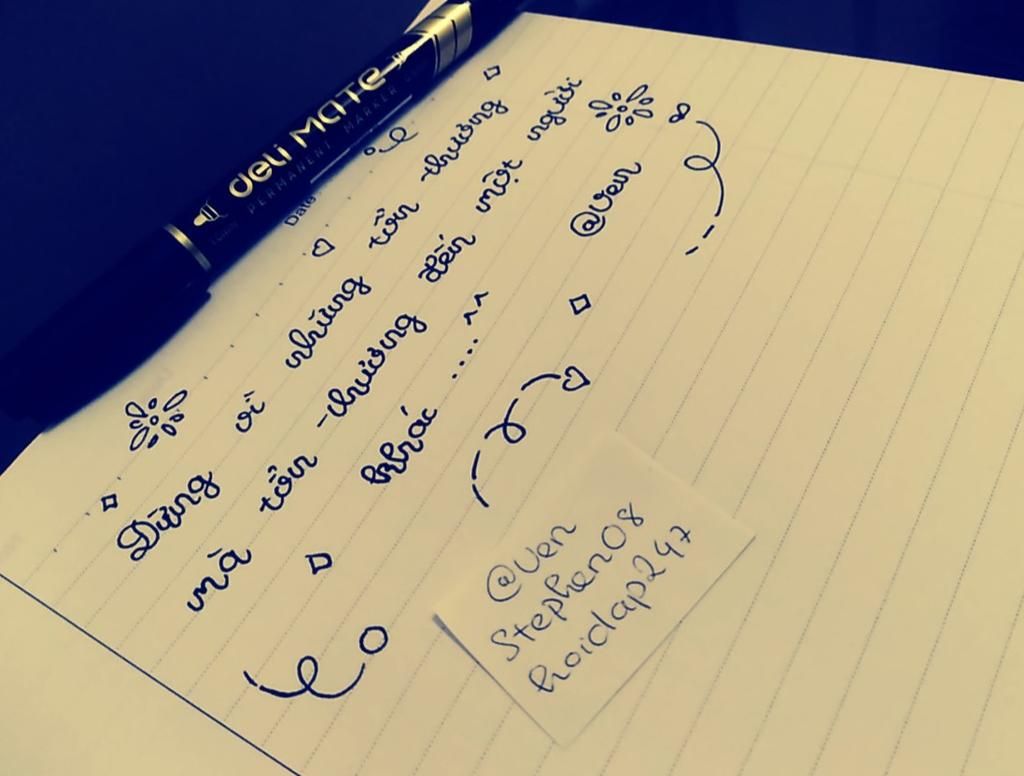 deli MATE
PERMANENT MARKER
Date
Đừng vì những tổn thương
mà tổn thương đến một người
khác .... ^^
@Ven
@Ven
Stephen08
hoidap247